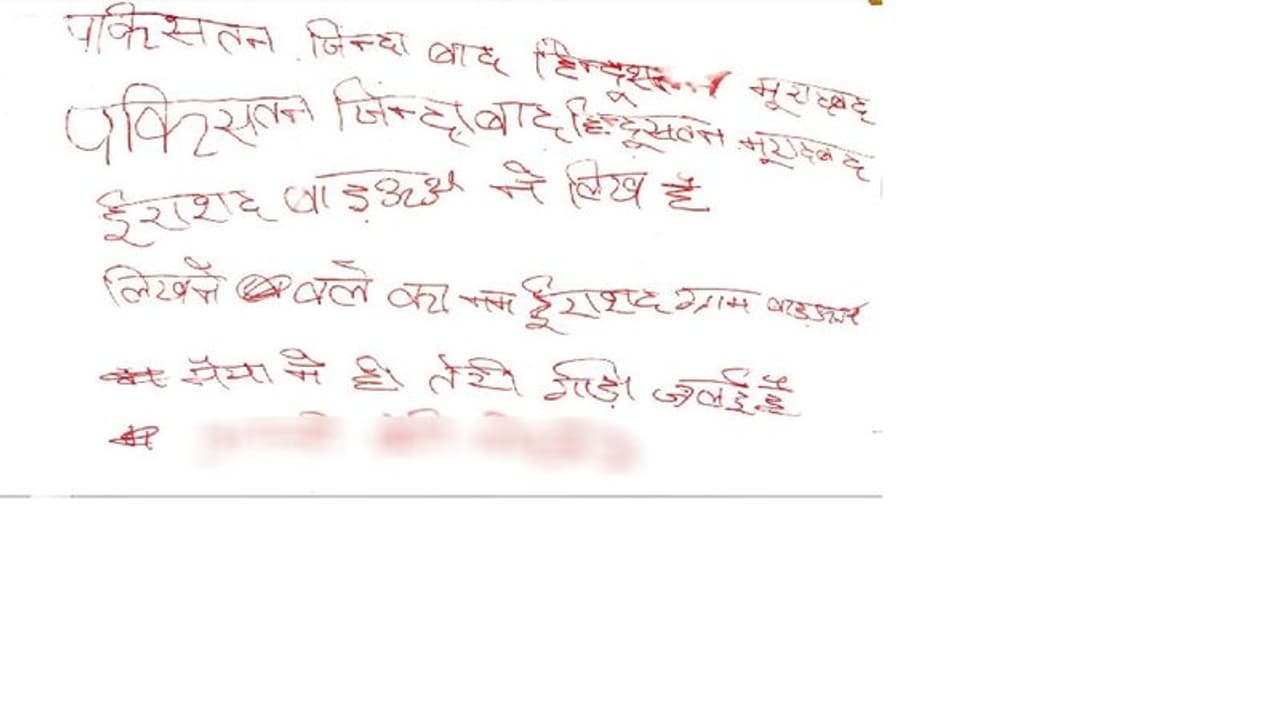 पकिसतन जिन्दा बाद हिन्दूसतन मूरादबद
पकिसतन जिन्दाबाद हिन्दूसतन मूरादबद
ईराशद ने लिख है
लिखने वले का नम ईराशद ग्राम
मैया मे ही तेरी गाडी जलई है